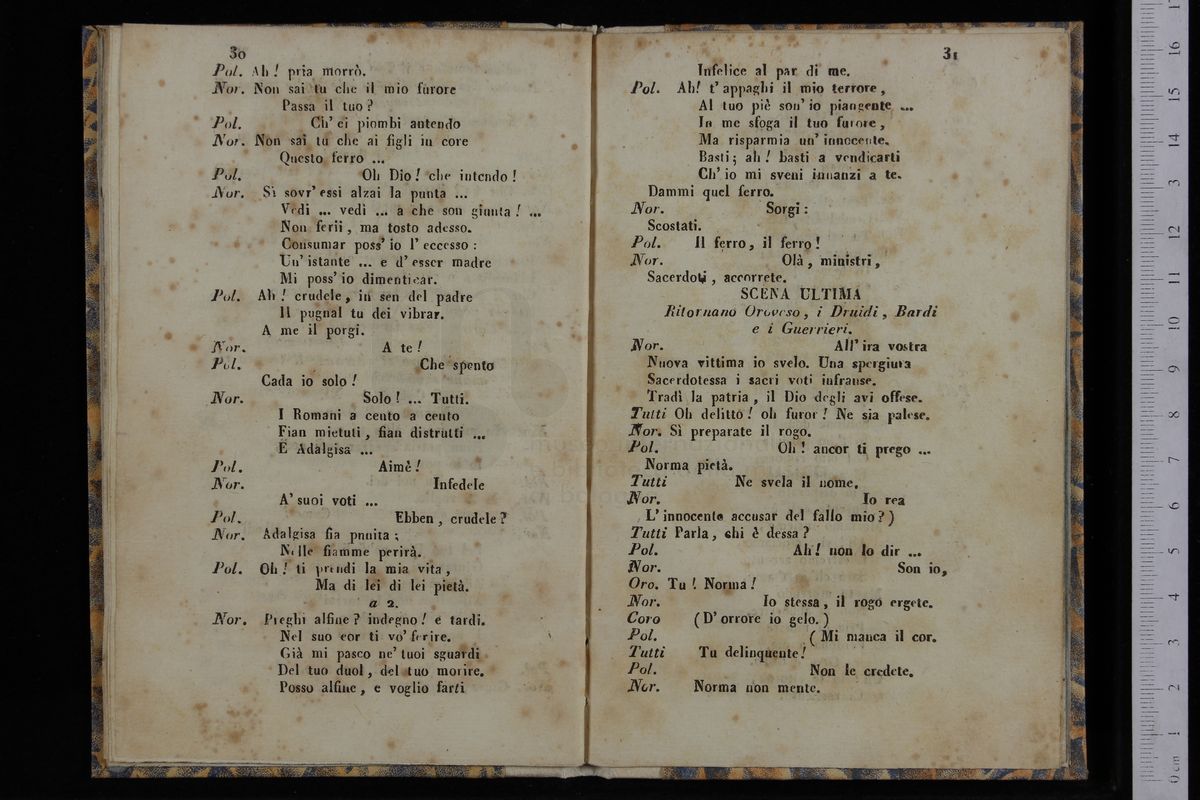 30
Pol. Ah! pria morrò.
Nor. Non sai tu che il mio furore
Passa il tuo?
Pol. Ch' ei piombi antendo
Nor. Non sai tu che ai figli in core
Questo ferro ...
Pol. Oh Dio! che intendo!
Nor. Sì sovr' essi alzai la punta ...
Vedi ... vedi ... a che son giunta! ...
Non ferii, ma tosto adesso.
Consumar poss' io l' eccesso:
Un' istante ... e d' esser madre
Mi poss' io dimenticar.
Pol. Ah! crudele, in sen del padre
Il pugnal tu dei vibrar.
A me il porgi.
Nor. A te!
Pol. Che spento
Cada io solo!
Nor. Solo! ... Tutti.
I Romani a cento a cento
Fian mietuti, fian distrutti ...
E Adalgisa ...
Pol. Aimè!
Nor. Infedele
A' suoi voti ...
Pol. Ebben, crudele?
Nor. Adalgisa fia punita;
Nelle fiamme perirà.
Pol. Oh! ti prendi la mia vita,
Ma di lei di lei pietà.
a 2.
Nor. Preghi alfine? indegno! e tardi.
Nel suo cor ti vo' ferire.
Già mi pasco ne' tuoi sguardi
Del tuo duol, del tuo morire.
Posso alfine, e voglio farti
31
Infelice al par di me.
Pol. Ah! t' appaghi il mio terrore,
Al tuo piè son' io piangente ...
In me sfoga il tuo furore,
Ma risparmia un' innocente.
Basti; ah! basti a vendicarti
Ch' io mi sveni innanzi a te.
Dammi quel ferro.
Nor. Sorgi:
Scostati.
Pol. Il ferro, il ferro!
Nor. Olà, ministri,
Sacerdoti, accorrete.
SCENA ULTIMA
Ritornano Oroveso, i Druidi, Bardi
e i Guerrieri.
Nor. All' ira vostra
Nuova vittima io svelo. Una spergiura
Sacerdotessa i sacri voti infranse.
Tradì la patria, il Dio degli avi offese.
Tutti Oh delitto! oh furor! Ne sia palese.
Nor. Sì preparate il rogo.
Pol. Oh! ancor ti prego ...
Norma pietà.
Tutti Ne svela il nome.
Nor. Io rea
L' innocente accusar del fallo mio?)
Tutti Parla, chi è dessa?
Pol. Ah! non lo dir ...
Nor. Son io,
Oro. Tu! Norma!
Nor. Io stessa, il rogo ergete.
Coro (D' orrore io gelo.)
Pol. (Mi manca il cor.
Tutti Tu delinquente!
Pol. Non le credete.
Nor. Norma non mente.